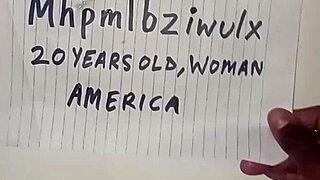 Mhpmlbziwulx
20 YEARS OLD, WOMAN
AMERICA